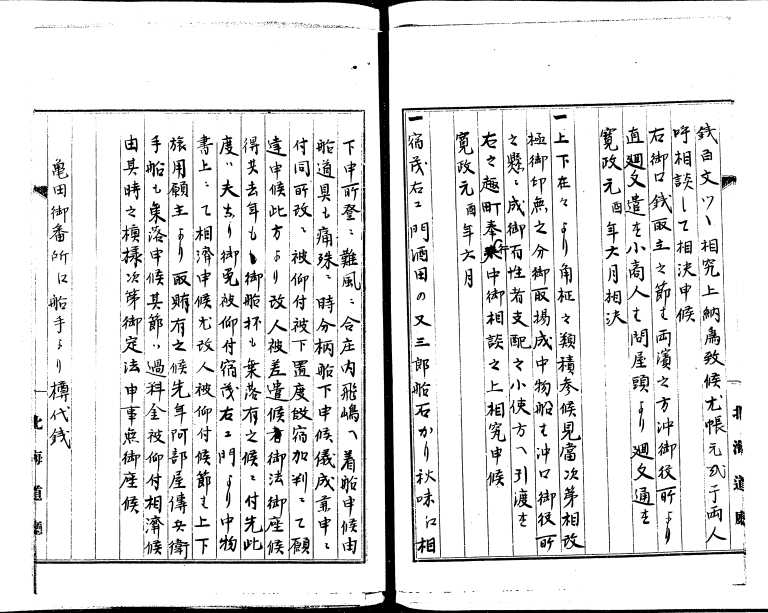 銭百文ツヽ相究上納為致候尤帳元弐丁両人
呼相談して相決申候
右御口銭取立之節も両濱之方沖御役所より
直廻文遣を小商人も問屋頭より廻文通を
寛政元酉年六月相決
一上下在々より角柾之類積参候見當次第相改
極御印無之分御取揚成申物船も沖口御役所
之懸ニ成御百性者支配之小使方へ引渡を
右之趣町奉中御相談之上相究申候
寛政元酉年六月
一宿茂右エ門酒田の又三郎船石かり秋味江相
下申所登ニ難風ニ合庄内飛嶋へ着船申候由
船道具も痛殊ニ時分柄船下申候儀成兼申ニ
付同所改ニ被仰付被下置度段宿加判ニて願
達申候此方より改人被差遣候者御法御座候
得共去年も御船杯も乗落有之候ニ付先此
度ハ夫より御免被仰付宿茂右エ門より申物
書上ニて相濟申候尤改人被仰付候節も上下
旅用願主より取賄有之候先年阿部屋傳兵衛
手船も乗落申候其節ハ過料金被仰付相濟候
由其時之模様次第御定法申事無御座候
亀田御番所江船手より樽代銭
北海道廳
北海道廳